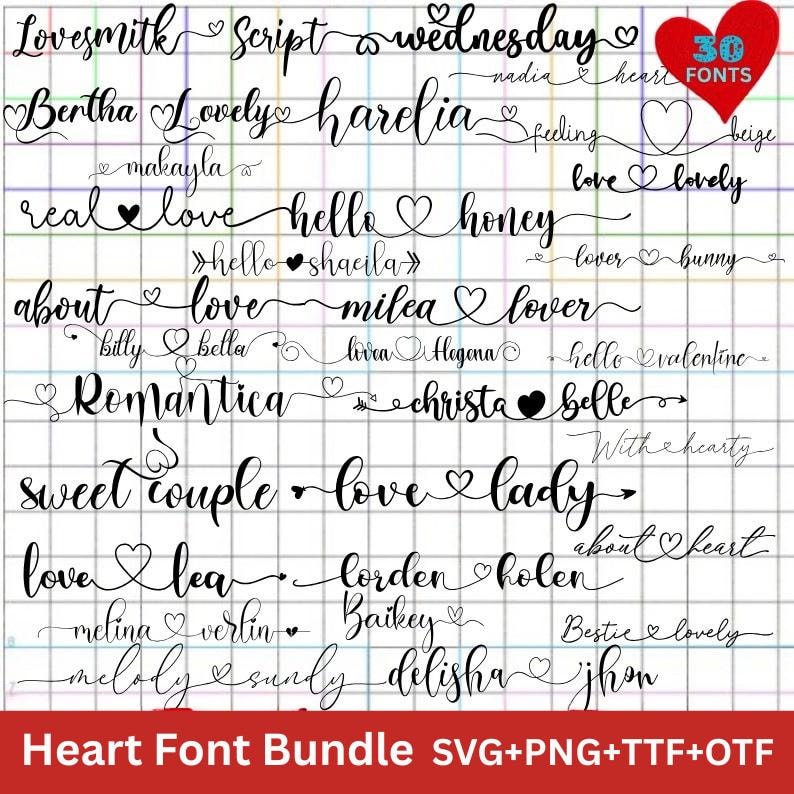 Lovesmith Script wednesday
30
FONTS
nadia heart
Bertha Lovely harelia
feeling beige
makayla
love lovely
real love hello honey
hello shaeila
lover bunny
about love milea lover
billy bella
lovea Hogena
hello valentine
Romantica
christa belle
With hearty
sweet couple love lady
about heart
love lea lorden holen
melina verlin
Baikey
Bestie lovely
melody sundy delisha jhon
Heart Font Bundle SVG+PNG+TTF+OTF